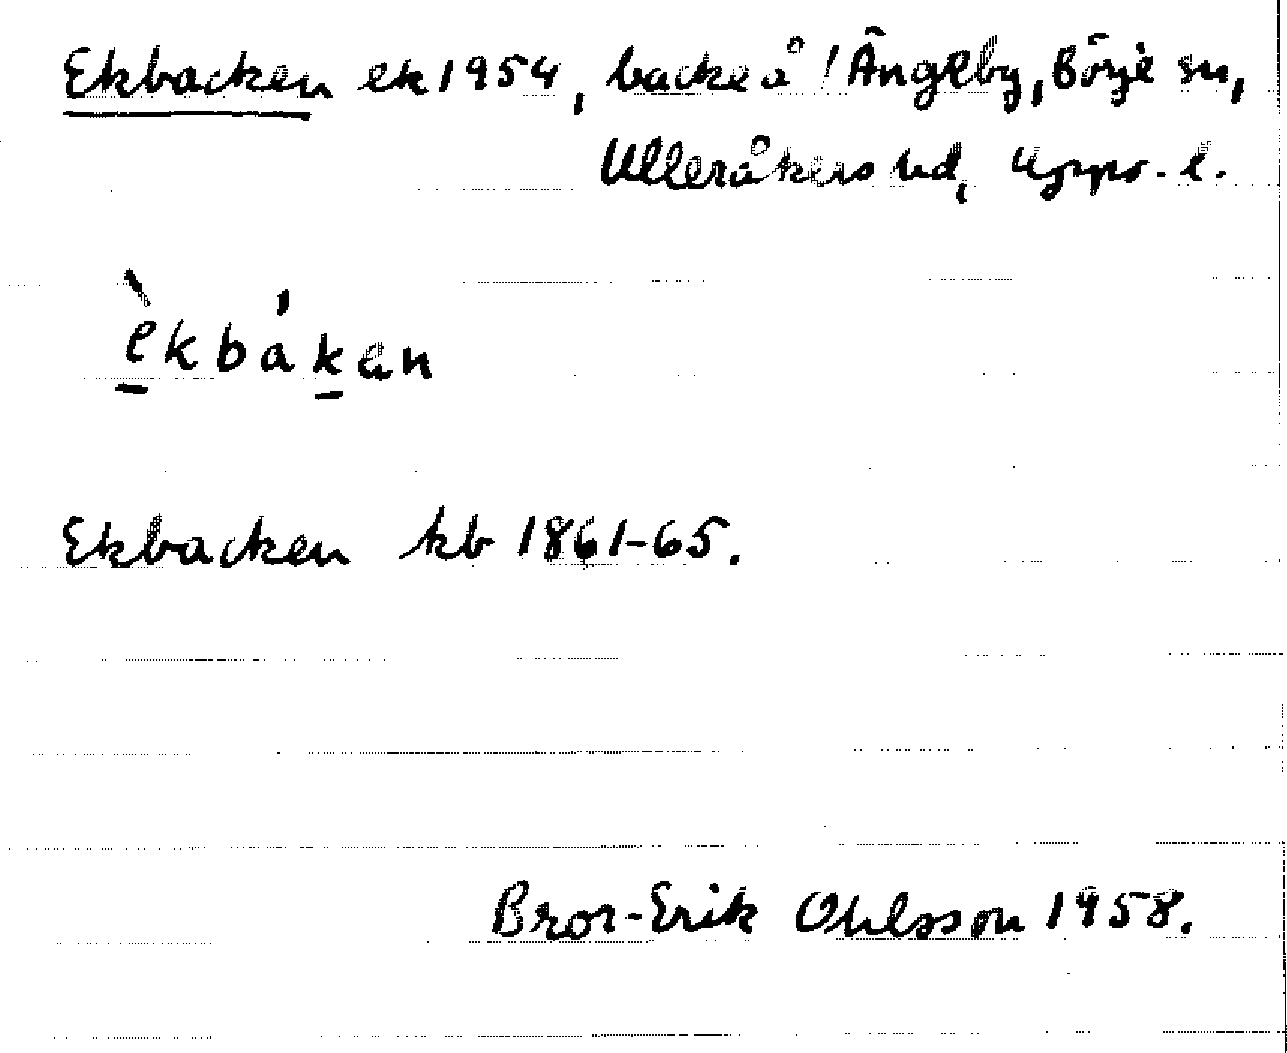 Ekbacken ek 1954, backe å ! Ängeby, Börje sn,
Ulleråkers hd, Upps. l.
è̱kbáḵen
Ekbacken kb 1861-65.
Bror-Erik Ohlsson 1958.